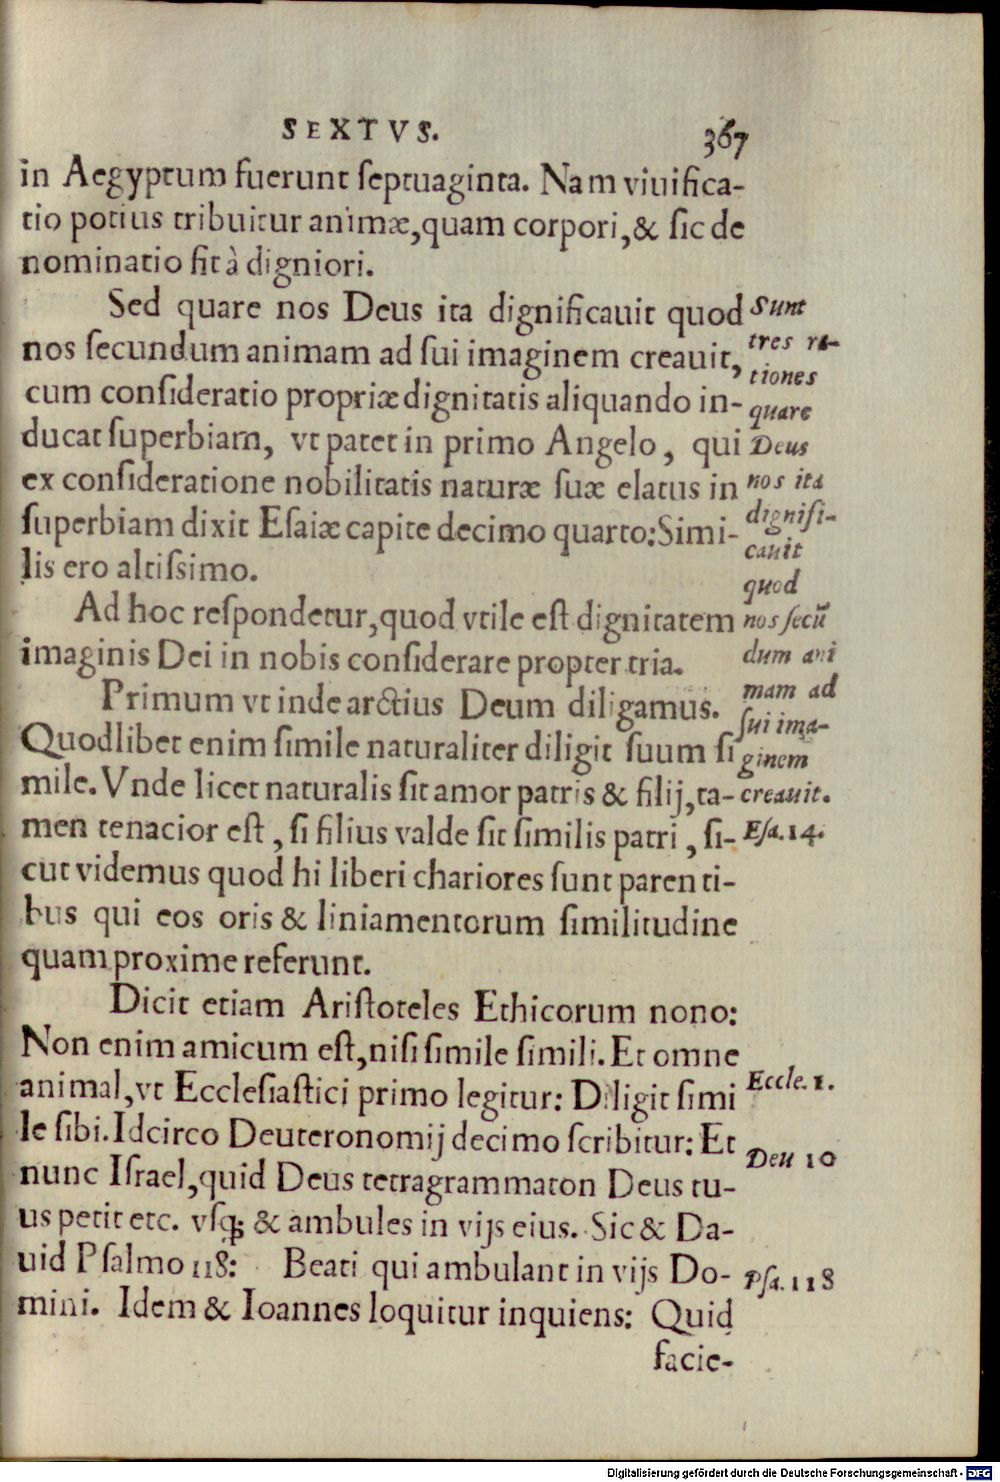 SEXTVS. 367
in Aegyptum fuerunt ſeptuaginta. Nam viuifica-
tio potius tribuitur animæ, quam corpori, & ſic de
nominatio fit à digniori.
Sed quare nos Deus ita dignificauit quod
nos ſecundum animam ad ſui imaginem creauit,
cum conſideratio propriæ dignitatis aliquando in-
ducat ſuperbiam, vt patet in primo Angelo, qui
ex conſideratione nobilitatis naturæ ſuæ elatus in
ſuperbiam dixit Eſaiæ capite decimo quarto: Simi-
lis ero altiſsimo.
Ad hoc reſpondetur, quod vtile eſt dignitatem
imaginis Dei in nobis conſiderare propter tria.
Primum vt inde arctius Deum diligamus.
Quodlibet enim ſimile naturaliter diligit ſuum ſi
mile. Vnde licet naturalis ſit amor patris & filij, ta-
men tenacior eſt, ſi filius valde ſit ſimilis patri, ſi-
cut videmus quod hi liberi chariores ſunt parenti-
bus qui eos oris & liniamentorum ſimilitudine
quam proxime referunt.
Dicit etiam Ariſtoteles Ethicorum nono:
Non enim amicum eſt, niſi ſimile ſimili. Et omne
animal, vt Eccleſiaſtici primo legitur: Diligit ſimi
le ſibi. Idcirco Deuteronomij decimo ſcribitur: Et
nunc Iſrael, quid Deus tetragrammaton Deus tu-
us petit etc. vſq; & ambules in vijs eius. Sic & Da-
uid Pſalmo 118: Beati qui ambulant in vijs Do-
mini. Idem & Ioannes loquitur inquiens: Quid
facie-
Sunt
tres ra-
tiones
quare
Deus
nos ita
dignifi-
cauit
quod
nos ſecū
dum ani
mam ad
ſui ima-
ginem
creauit.
Eſa. 14.
Eccle. 1.
Deu 10
Pſa. 118
Digitalisierung gefördert durch die Deutsche Forschungsgemeinschaft - DFG